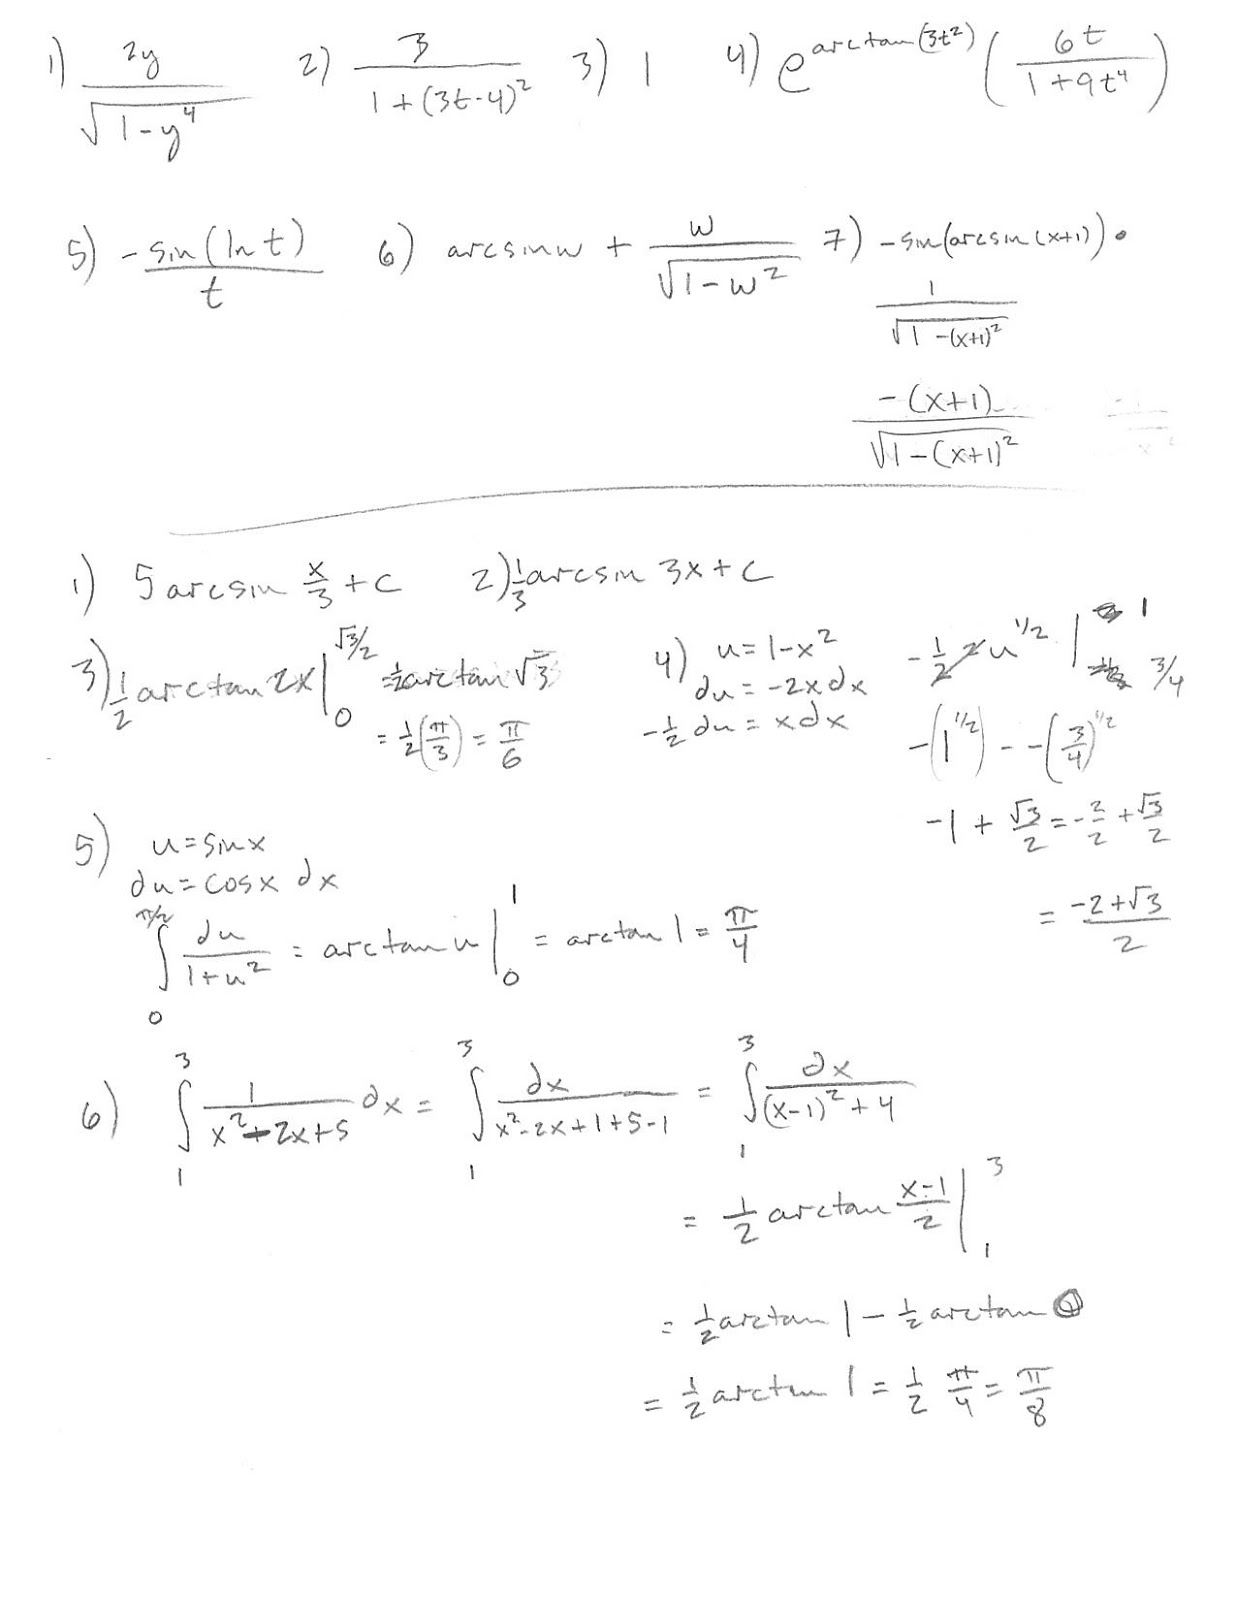 1) 2y / √(1-y⁴)   2) 3 / (1+(3t-4)²)   3) 1   4) e^(arctan(3t²)) (6t / (1+9t⁴))
5) -sin(ln t) / t   6) arcsin w + w / √(1-w²)   7) -sin(arcsin(x+1)) •
1 / √(1-(x+1)²)
-(x+1) / √(1-(x+1)²)
1) 5 arcsin x/3 + c   2) 1/3 arcsin 3x + c
3) 1/2 arctan 2x |₀^(√3/2) = 1/2 arctan √3
= 1/2 (π/3) = π/6
4) u = 1-x²
du = -2x dx
-1/2 du = x dx
-1/2 2u^(1/2) |_(3/4)^1
-(1^(1/2)) - -(3/4)^(1/2)
-1 + √3/2 = -2/2 + √3/2
= (-2+√3) / 2
5) u = sin x
du = cos x dx
∫₀^(π/2) du / (1+u²) = arctan u |₀^1 = arctan 1 = π/4
6) ∫₁^3 1 / (x²-2x+5) dx = ∫₁^3 dx / (x²-2x+1+5-1) = ∫₁^3 dx / ((x-1)²+4)
= 1/2 arctan (x-1)/2 |₁^3
= 1/2 arctan 1 - 1/2 arctan 0
= 1/2 arctan 1 = 1/2 π/4 = π/8